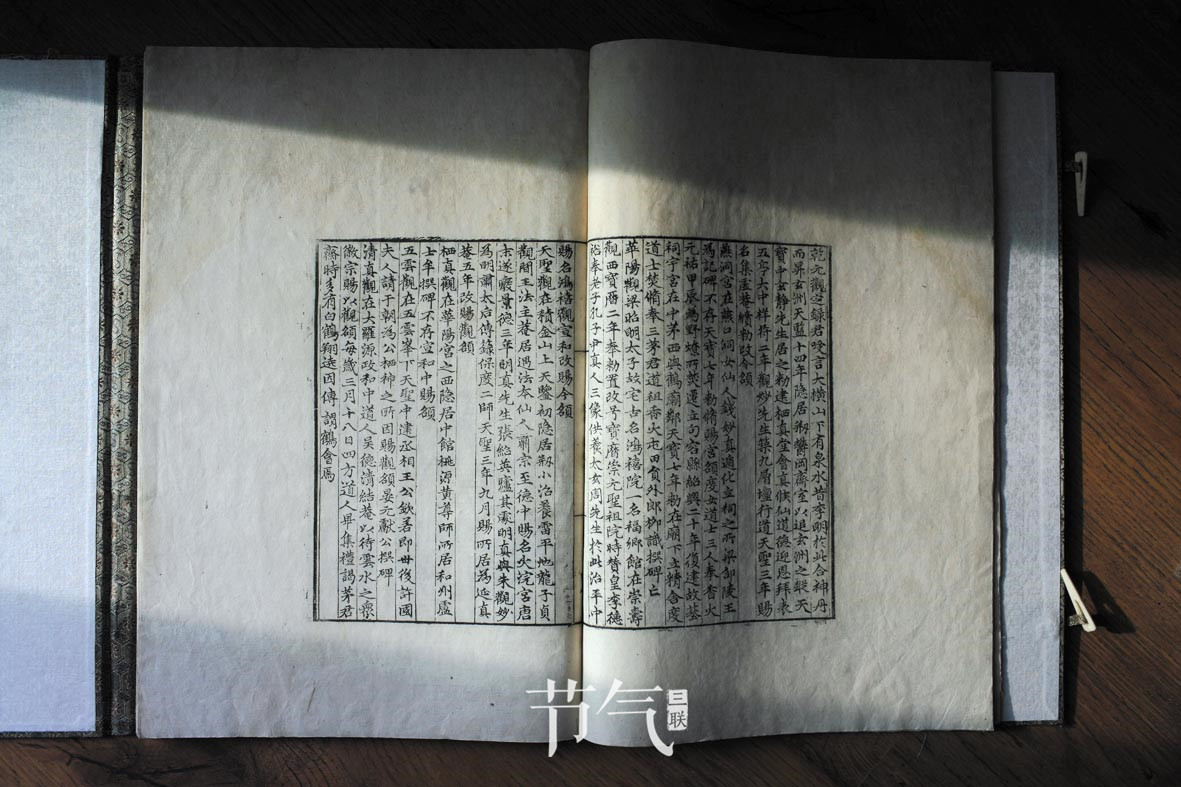 乾元觀定錄君受言大橫山下有泉水昔李明於此合神丹
而昇玄洲天監十四年隱居剏鬱岡齋室以追玄洲之蹤天
寶中玄靜先生居之勑建栖真堂會真候仙道德迎恩拜表
五亭大中祥符二年觀妙先生築九層壇行道天聖三年賜
名集虛菴續勑改今額
燕洞宮在燕口洞女仙人錢妙真適化立祠之所梁邵陵王
為記碑不存天寶七年勑脩賜宮額度女道士三人奉香火
元祐甲辰為野燎所焚遷立句容縣紹興二十年復建故基
祠宇宮在中茅西與鶴廟鄰天寶七年勑在廟下立精舍度
道士焚脩奉三茅君道祖香火屯田員外郎柳識撰碑亡
華陽觀梁昭明太子故宅古名鴻禧院一名福鄉館在崇壽
觀西寶曆二年奉勑置改号寶曆崇元聖祖院特贊皇李德
裕奉老子孔子尹真人三像供養太玄周先生於此治平中
賜名鴻禧觀宣和改賜今額
天聖觀在積金山上天監初隱居剏小治養雷平池龍子貞
觀間王法主菴居過法本仙人肅宗至德中賜名火浣宮唐
末遂廢景德三年明真先生張紹英驢其處明真與朱觀妙
為明肅太后傳籙保度二師天聖三年九月賜所居為延真
菴五年改賜觀額
栖真觀在華陽宮之西隱居中館桃源黃尊師所居和州盧
士年撰碑不存宣和中賜額
五雲觀在五雲峯下天聖中建丞相王公欽若即世後許國
夫人請于朝為公栖神之所因賜觀額晏元獻公撰碑
清真觀在大羅源政和中道人吳德清結菴以待雲水之衆
徽宗賜以觀額每歲三月十八日四方道人畢集禮謁茅君
齋時多有白鶴翔遶因傳謂鶴會焉
节气
三联